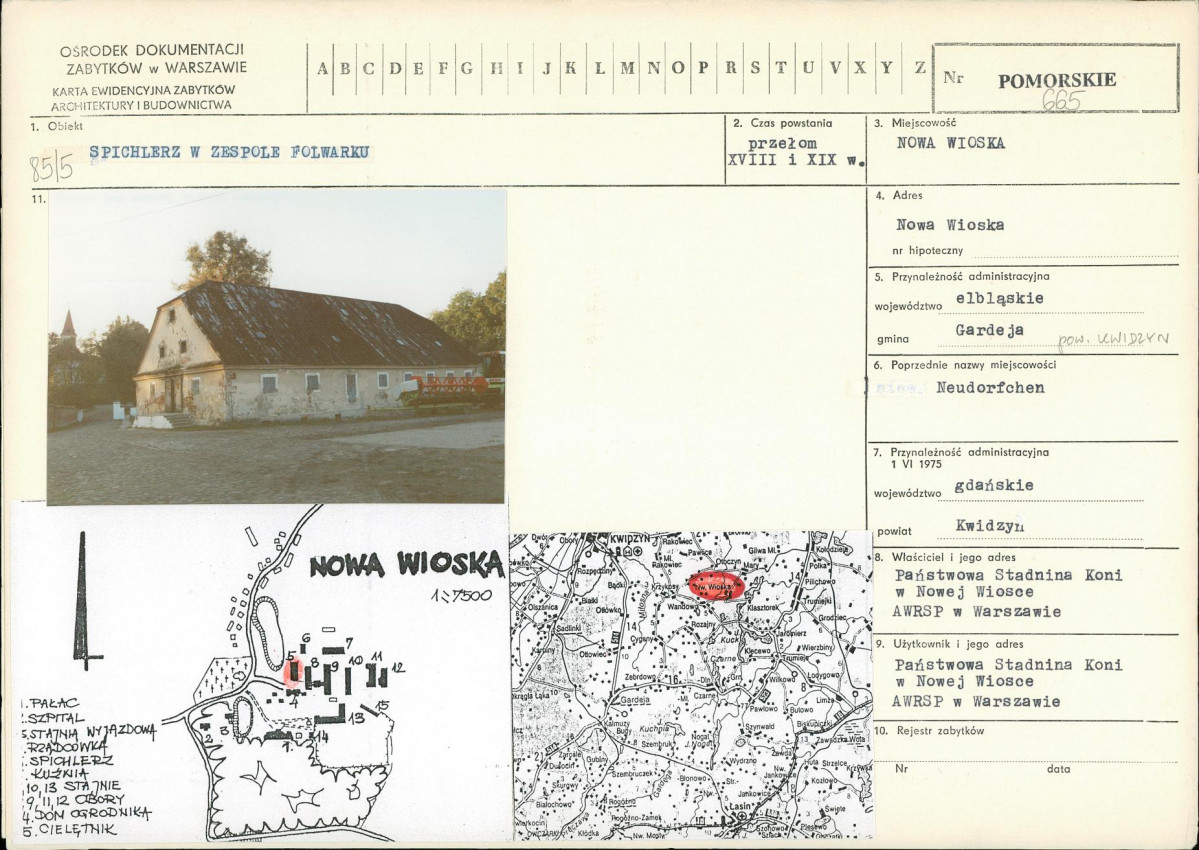 OŚRODEK DOKUMENTACJI
ZABYTKÓW w WARSZAWIE
KARTA EWIDENCYJNA ZABYTKÓW
ARCHITEKTURY I BUDOWNICTWA
A B C D E F G H I J K L M N O P R S T U V X Y Z
Nr POMORSKIE
665
1. Obiekt
85/5 SPICHLERZ W ZESPOLE FOLWARKU
2. Czas powstania
przełom
XVIII i XIX w.
3. Miejscowość
NOWA WIOSKA
4. Adres
Nowa Wioska
nr hipoteczny
5. Przynależność administracyjna
województwo elbląskie
gmina Gardeja pow. KWIDZYN
6. Poprzednie nazwy miejscowości
Neudorfchen
7. Przynależność administracyjna
1 VI 1975
województwo gdańskie
powiat Kwidzyn
8. Właściciel i jego adres
Państwowa Stadnina Koni
w Nowej Wiosce
AWRSP w Warszawie
9. Użytkownik i jego adres
Państwowa Stadnina Koni
w Nowej Wiosce
AWRSP w Warszawie
10. Rejestr zabytków
Nr data
11.
NOWA WIOSKA
1:7500
6
7
5 8 9 10 11 12
4
2 3 13 15
1. 14
1. PAŁAC
SZPITAL
STAJNIA WYJAZDOWA
RZĄDCÓWKA
SPICHLERZ
KUŹNIA
10, 13 STAJNIE
9, 11, 12 OBORY
4. DOM OGRODNIKA
5. CIELĘTNIK
KWIDZYN
Rakowiec
Pawlice
Gilwa Mł.
Kołodzieje
Obory
Rozpędziny
Ml. Rakowiec
Otoczyn
Mary
Polka
Bądki
Krzykosy
Nw. Wioska
Pilichowo
Olszanica
Białki
Otówko
Wandowo
Klasztorek
Trumiejki
Sadlinki
14
Rozajny
Grodziec
Karpiny
Cygany
Kuck
Jaromierz
Otłowiec
Klecewo
Wierzbiny
J. Czarne
Trumieje
Zebrdowo
16
Wilkowo
Łodygowo
Gardeja
Czarne
Limża
Kalmuzy
Pawłowo
Butowo
Bugy
Kuchnia
Szynwałd
Biskupiczki
Szembruk
Nogat
J. Nogat
Zawdzka Wola
21
Wydrzno
Zawda
Gubiny
Szembruczek
Nw. Jankowice
Huta Strzelce
Błonowo
Kozłowo
Skurgwy
Jankowice
Białochowo
Rogóźno
Święte
Rogóźno-Zamek
Łasin
Kłódka
Nw. Mosty
Szonowo Szlach.
Plesewo